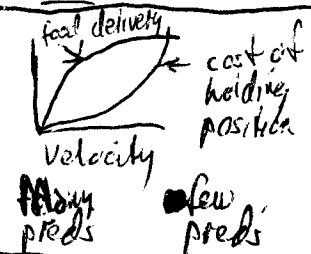 food delivery
cost of
holding
position
Velocity
Many few
preds preds